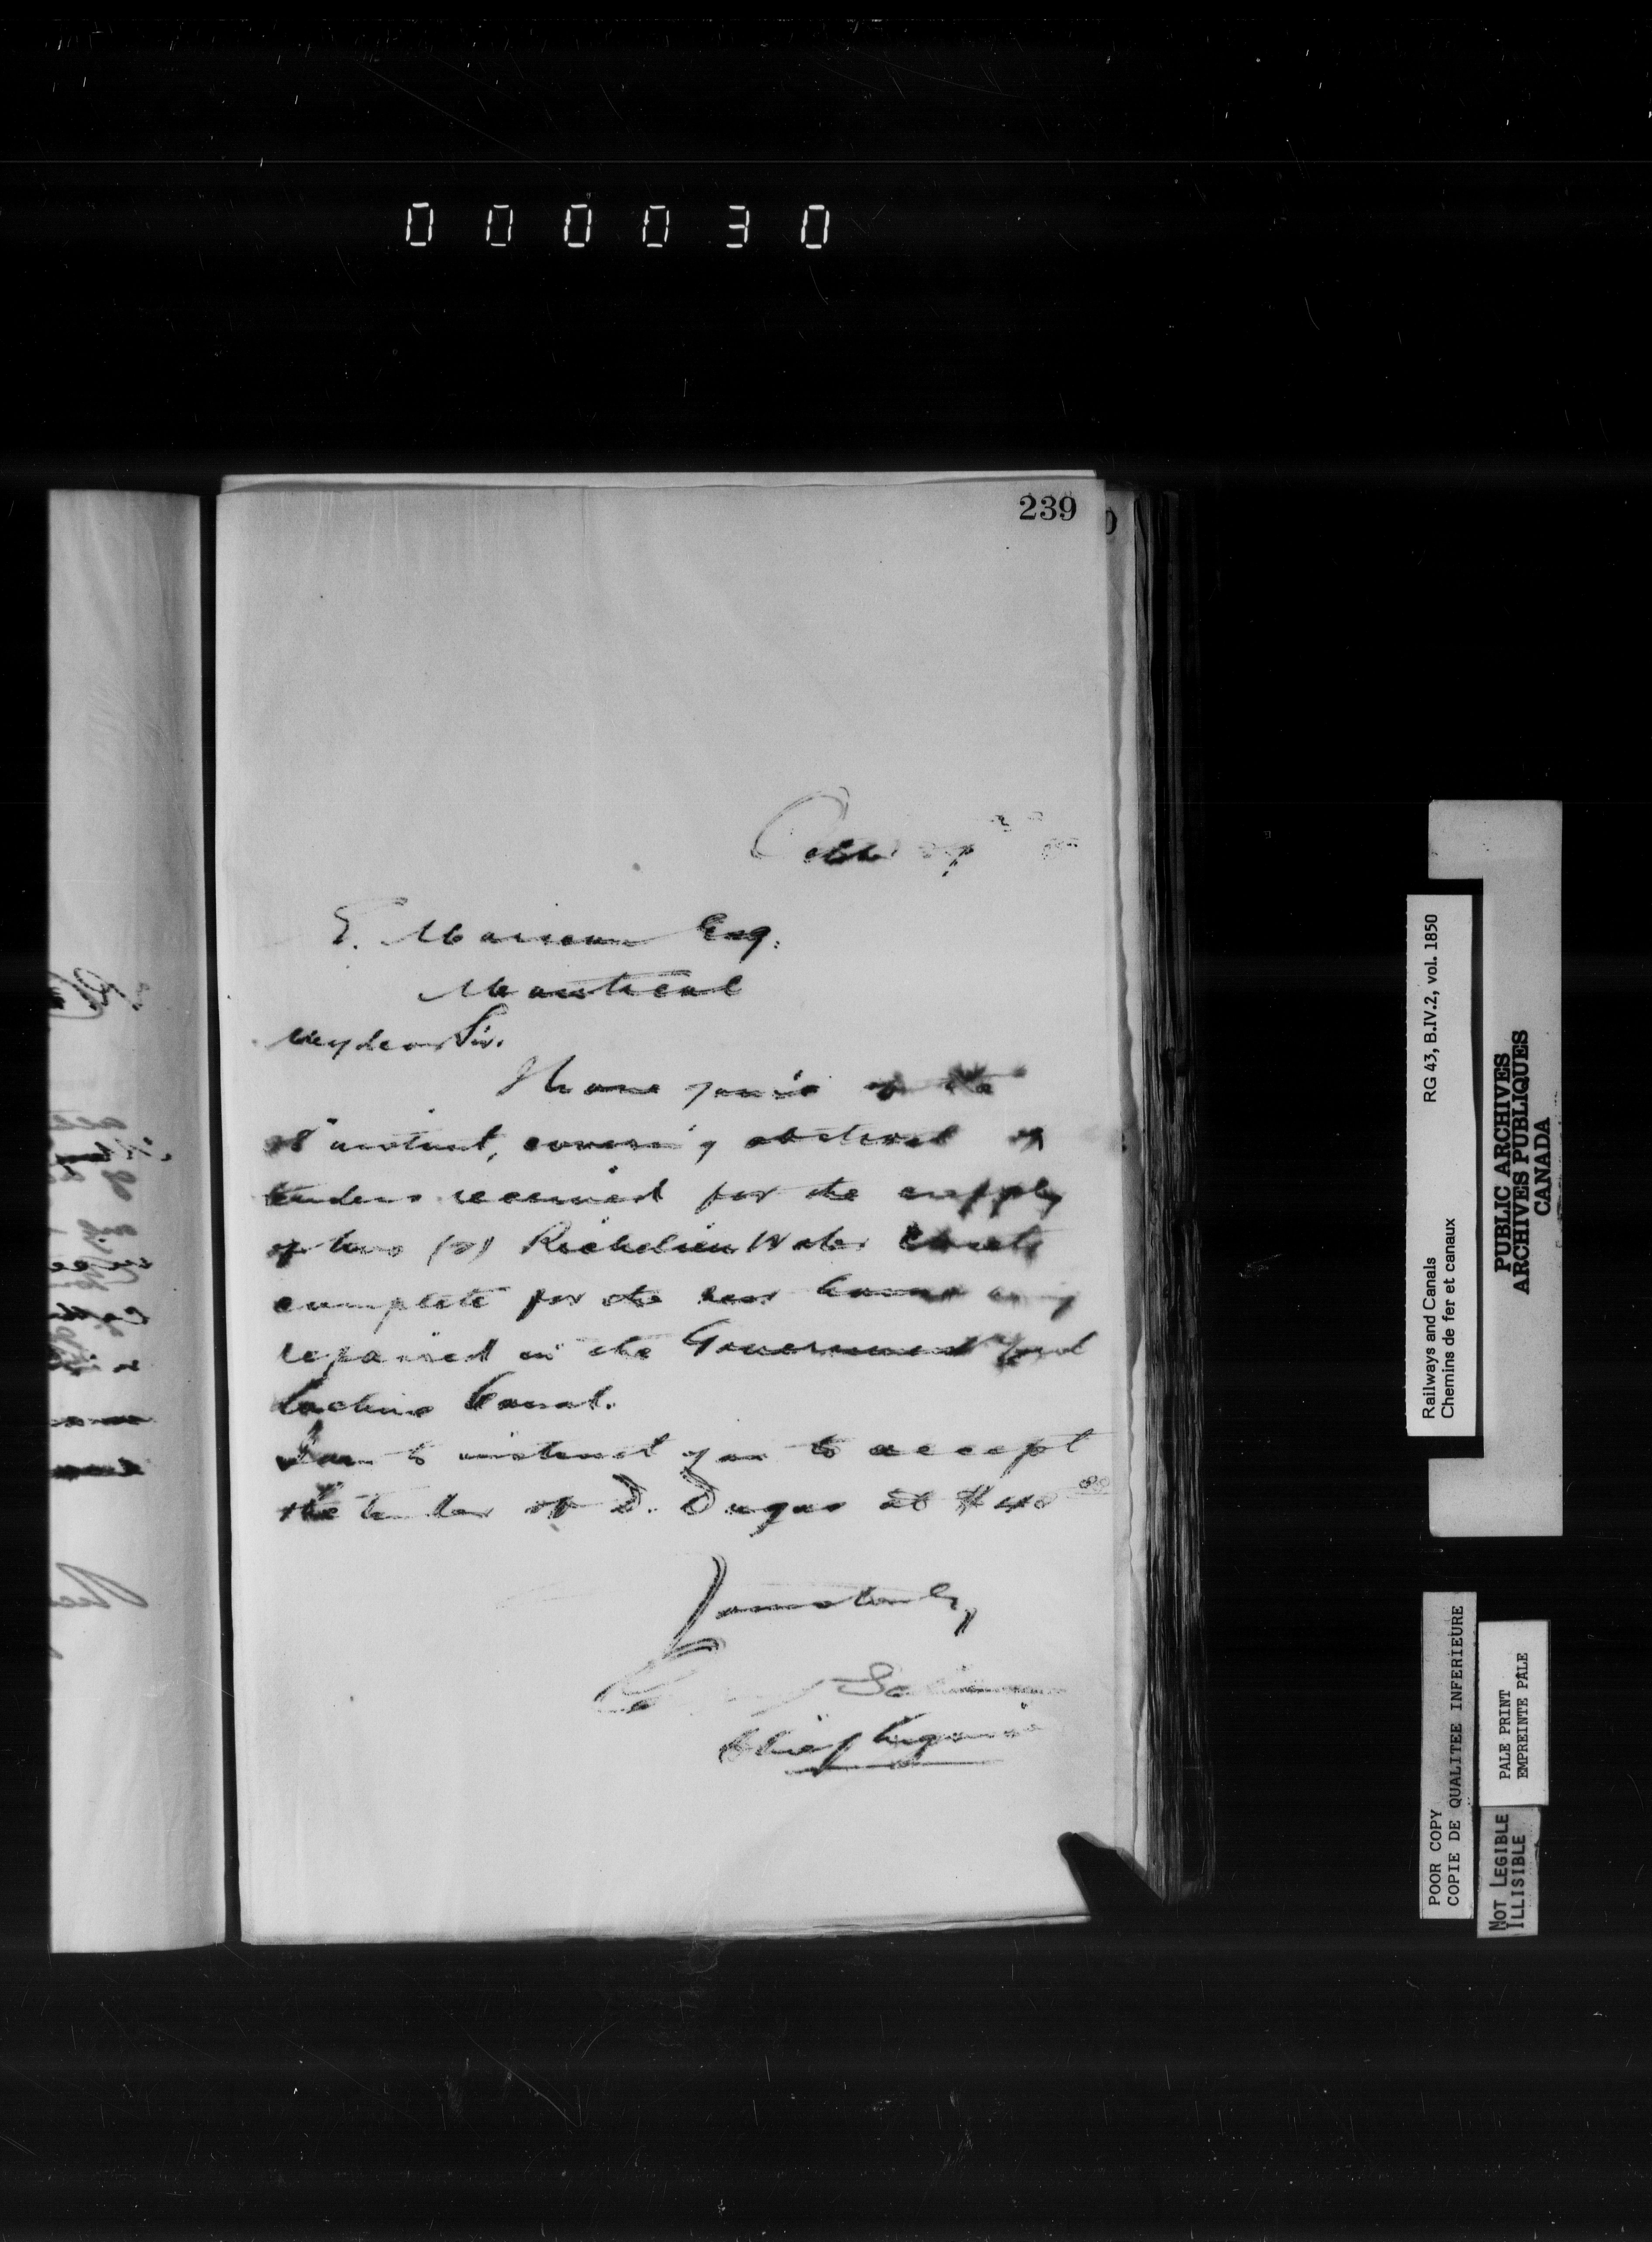 000030
239
October
E. Marceau Esq.
Montreal
My dear Sir.
I have yours of the
instant, covering abstract of
tenders received for the supply
of two (2) Richelieu Water Closets
complete for the
repaired in the Government Yard
Lachine Canal.
I am to instruct you to accept
the tender of D. Dugas at $40 00
Yours truly,
Chief Engineer
Railways and Canals RG 43, B.IV.2, vol. 1850
Chemins de fer et canaux
PUBLIC ARCHIVES
ARCHIVES PUBLIQUES
CANADA
POOR COPY
COPIE DE QUALITEE INFERIEURE
PALE PRINT
EMPREINTE PÂLE
NOT LEGIBLE
ILLISIBLE